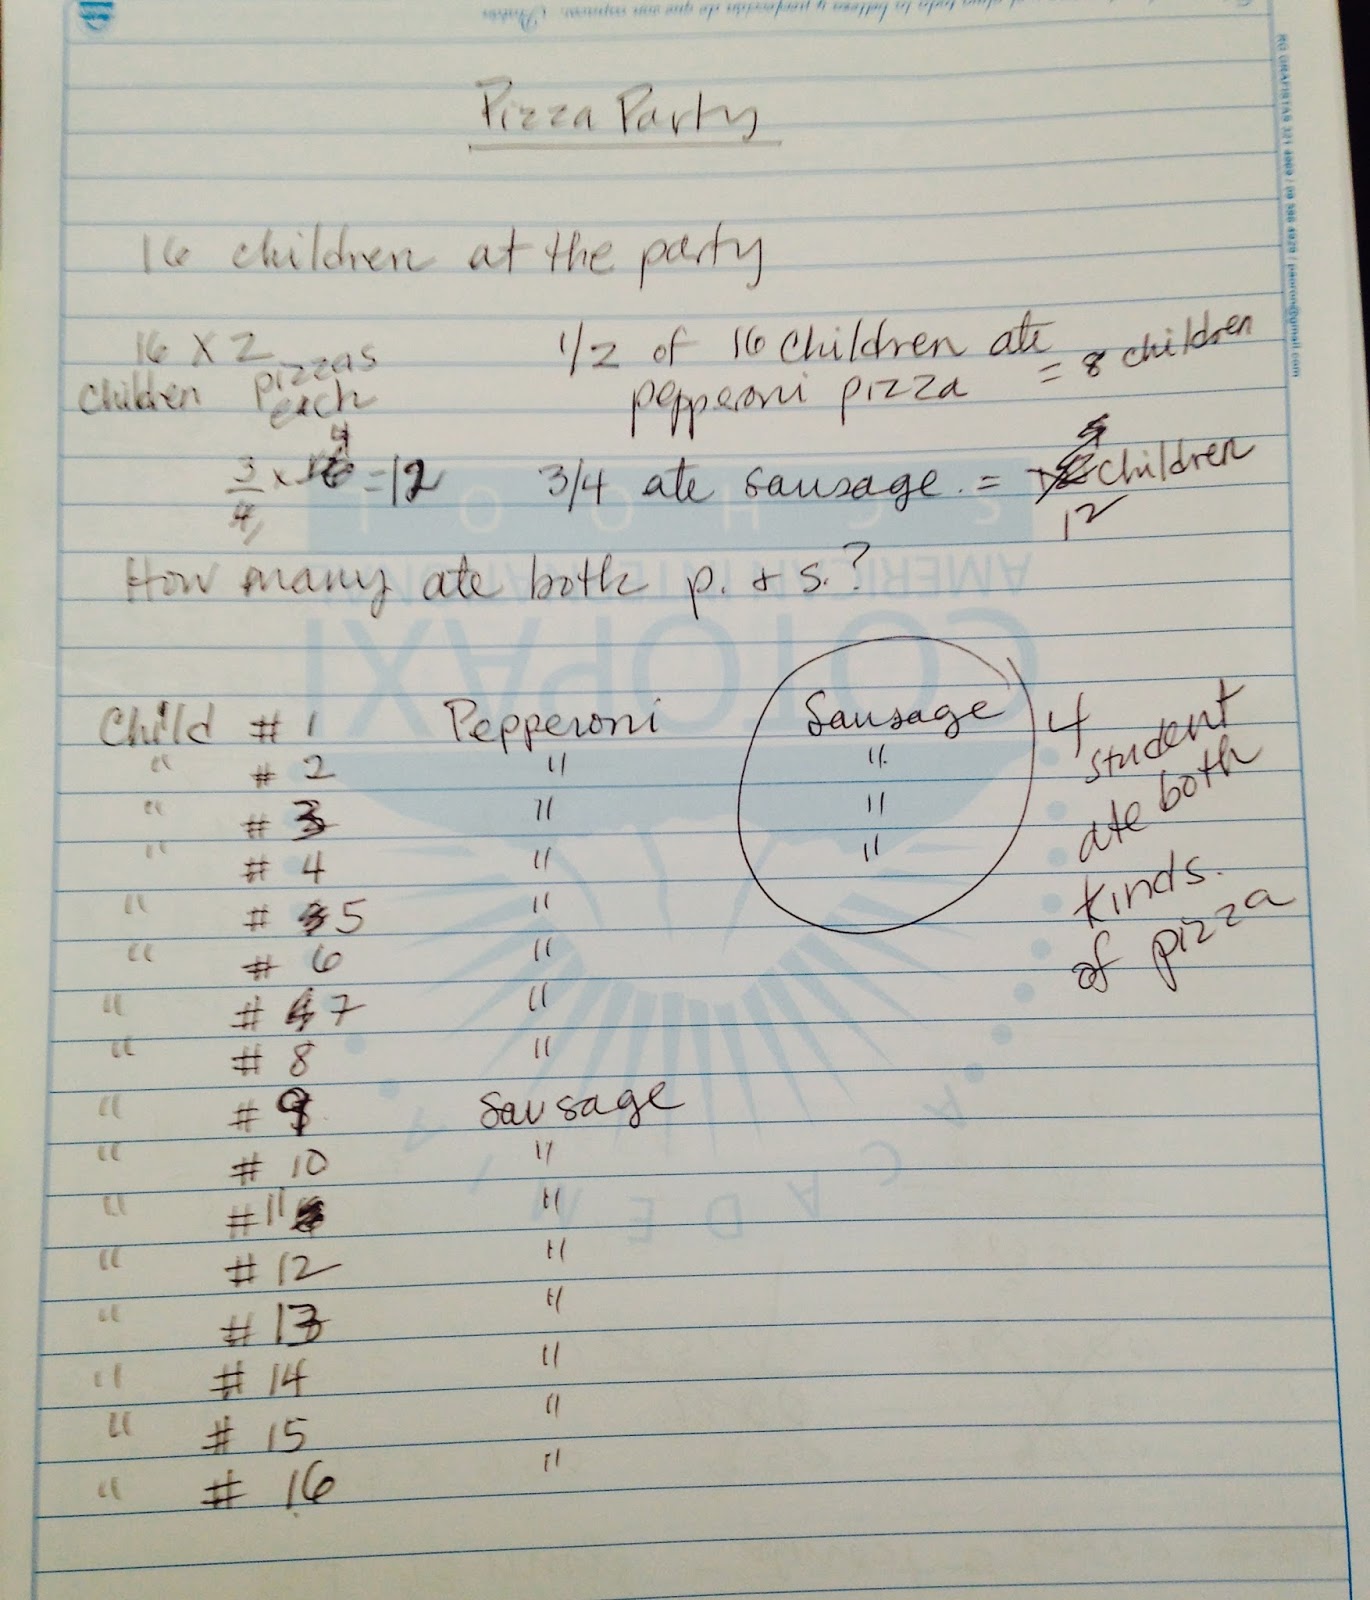 Pizza Party
16 children at the party
16 x 2 pizzas
children each
1/2 of 16 children ate
pepperoni pizza = 8 children
3/4 x 16 4 = 12
3/4 ate sausage. = children
12
How many ate both p. & s.?
Child # 1 Pepperoni Sausage
" # 2 " "
" # 3 " "
" # 4 " "
" # 5 "
" # 6 "
" # 7 "
" # 8 "
" # 9 Sausage
" # 10 "
" # 11 "
" # 12 "
" # 13 "
" # 14 "
" # 15 "
" # 16 "
4
student
ate both
kinds.
of pizza
COTOPAXI
AMERICAN INTERNATIONAL
SCHOOL
ACADEMIA